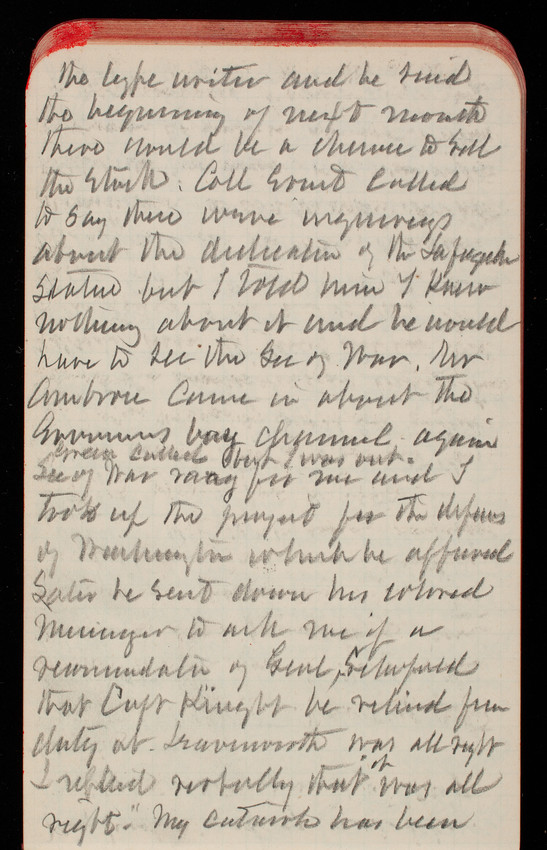 the type writer and he said
the beginning of next month
there would be a chance to sell
the stock. Coll Grant called
to say there were inquireys
about the dedicatin of the Lafayette
statue but I told him I knew
nothing about it and he would
have to see the Sec of War. Mr
Ambrose came in about the
Governors bay channel again
Green called but I was out.
Sec of War rang for me and I
took up the project for the defens
of Washington which he approved
Later he sent down his colored
Messenger to ask me if a
recommendatn of Genl Schofield
that Capt Knight be relievd from
duty at Leavenworth was all right
I replied verbally that "it was all
right." My catarrh has been